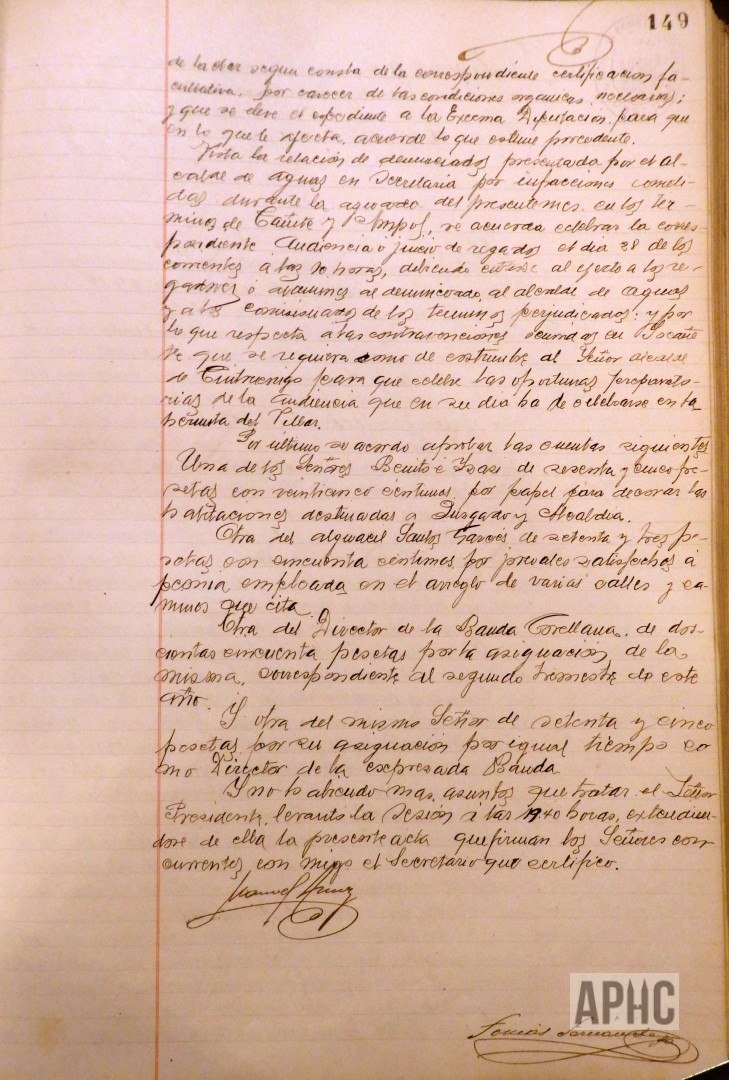 149
de la der segun consta de la correspondiente certificacion fa-
cultativa, por carecer de las condiciones organicas necesarias;
y que se eleve el expediente a la Excma Diputacion para que
en lo que le afecta, acuerde lo que estime procedente.
Vista la relación de denunciados presentada por el al-
calde de aguas en Secretaria por infracciones cometi-
das durante la del presente mes en los ter-
minos de Cañete y Ampol, se acuerda celebrar la corres-
pondiente Audiencia o juicio de regados el dia 28 de los
corrientes a las 10 horas, debiendo citarse al efecto a los re-
gadores o al denunciado, al alcalde de aguas
y a los comisionados de los terminos perjudicados; y por
lo que respecta a las contravenciones ocurridas en
te que se requiera como de costumbre al Señor alcalde
de Cintruenigo para que celebre las oportunas preparato-
rias de la Audiencia que en su dia ha de celebrarse en la
hermita del Villar.
Por ultimo se acordo aprobar las cuentas siguientes
Una de los Señores Benito é Ysasi de sesenta y cinco pe-
setas con veinticinco centimos, por papel para decorar las
habitaciones destinadas a Juzgado y Alcaldia.
Otra del alguacil Santos Garcés de setenta y tres pe-
setas con cincuenta centimos por jornales satisfechos á
peonia empleada en el arreglo de varias calles y ca-
minos que cita.
Otra del Director de la Banda Corellana, de dos-
cientas cincuenta pesetas por la asignación de la
misma, correspondiente al segundo trimestre de este
año.
Y otra del mismo Señor de setenta y cinco
pesetas por su asignación por igual tiempo co
mo Director de la expresada Banda
Y no habiendo mas asuntos que tratar el Señor
Presidente, levanto la sesión á las 19'40 horas, extendien-
dose de ella la presente acta que firman los Señores con-
currentes con migo el Secretario que certifico.
Manuel
APHC
Tomás